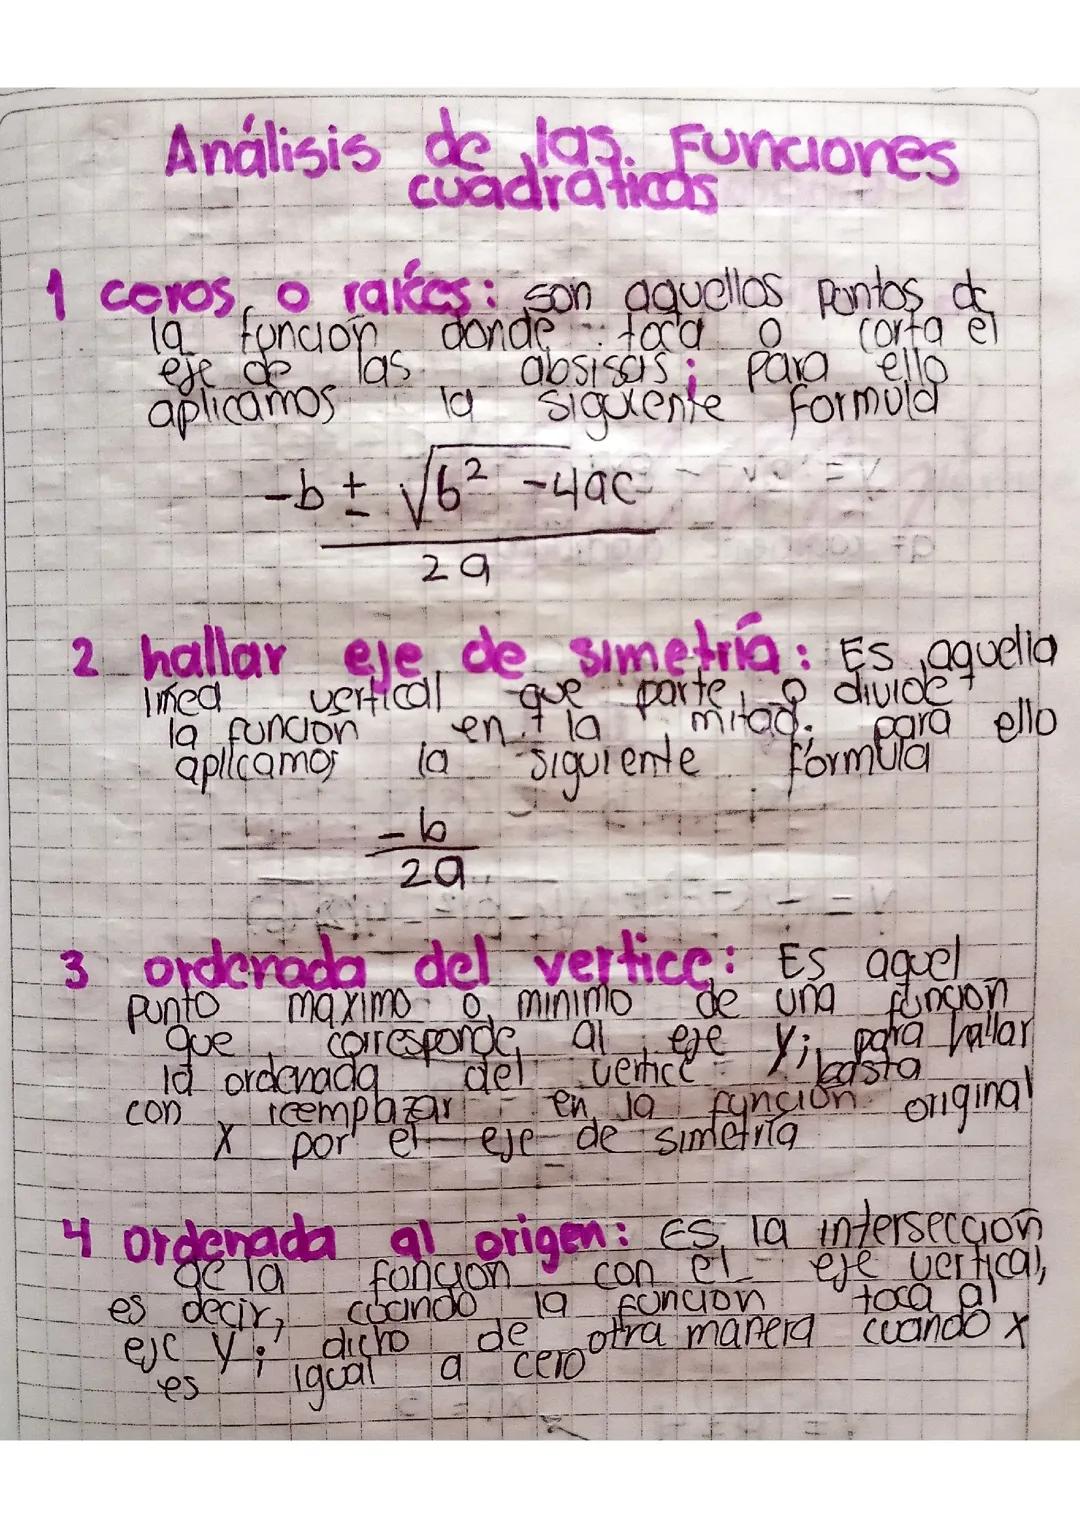 Análisis de las Funciones
cuadraticas
1 ceros o raices: son aquellos puntos de
la función donde toca o corta el
eje de las absisas; para ello
aplicamos la siguiente formula
-b ± √b² -4ac
2a
2 hallar eje de simetría: Es aquella
linea vertical que parte o divide
la función en la mitad. para ello
aplicamos la siguiente fórmula
-b
2a
3 ordenada del vertice: Es aquel
punto maximo o minimo de una función
que corresponde al eje y; para hallar
la ordenada del vertice basta
con reemplazar en la función original
x por el eje de simetría
4 ordenada al origen: Es la intersección
de la función con el eje vertical,
es decir, cuando la función toca al
eje y; dicho de otra manera cuando x
es igual a cero